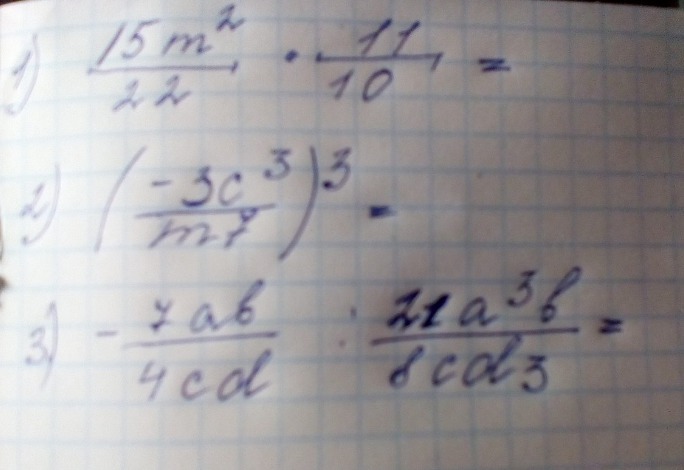 1) 15m²/22 · 11/10 =
2) (-3c³/m7)³ =
3) - 7ab/4cd : 21a³b/8cd3 =